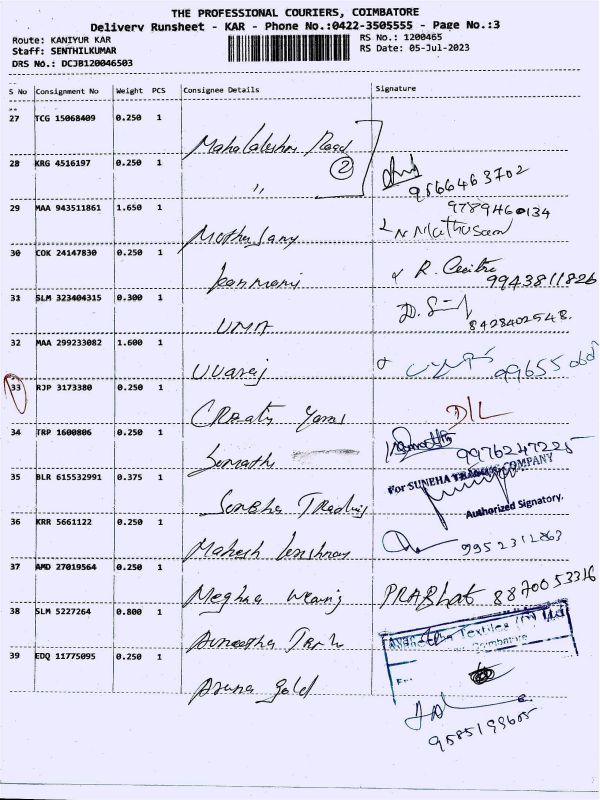 THE PROFESSIONAL COURIERS, COIMBATORE
Delivery Runsheet - KAR - Phone No.:0422-3505555 - Page No.:3
Route: KANIYUR KAR
RS No.: 1200465
Staff: SENTHILKUMAR
RS Date: 05-Jul-2023
DRS No.: DCJB120046503
S No Consignment No Weight PCS Consignee Details Signature
27 TCG 15068409 0.250 1
Mahalakshmi Road
28 KRG 4516197 0.250 1
2
"
9566463702
29 MAA 943511861 1.650 1
9789460134
30 COK 24147830 0.250 1
R.
9943811826
31 SLM 323404315 0.300 1
UMA
D.
8428402548.
32 MAA 299233082 1.600 1
Uvaraj
33 RJP 3173380 0.250 1
D/L
34 TRP 1600806 0.250 1
9976247225
35 BLR 615532991 0.375 1
For SUNEHA TRADING COMPANY
Suneha Trading
Authorized Signatory.
36 KRR 5661122 0.250 1
Mahesh
9952312863
37 AMD 27019564 0.250 1
Meghaa
PRABhat 8870053316
38 SLM 5227264 0.800 1
Textiles (P) Ltd
Coimbatore
39 EDQ 11775095 0.250 1
Aruna gold
9585199605